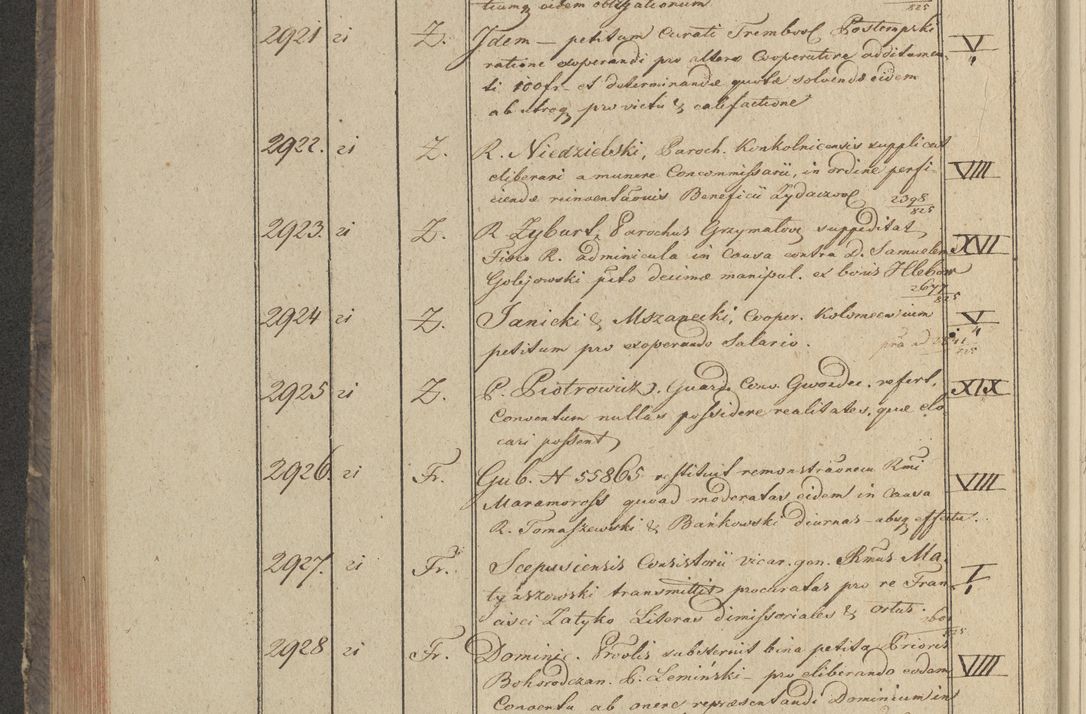 tiumq eidem obligationum 825
2921 zi Z. Idem — petitum Curati Trembovl Posterapski V/4
ratione exoperandi pro altero Cooperatore additamen
ti 100 fr — et determinandæ quotæ solvendæ eidem
ab utroq pro victu & calefactione
2922. zi Z. R. Niedzielski, Paroch. Konkolnicensis supplicat VIII
eliberari a munere Concommissarii, in ordine perfi-
ciendæ reinventãonis Beneficii Zydaczov 2398/825
2923. zi Z. R Zybart, Parochus Grzymalov suppeditat XVI
Fisco R. adminicula in Causa contra D. Samuelem
Golejowski pẽto decimæ manipul. ex bonis Hlebow 2677/825
2924 zi Z. Janicki & Mszanecki, Cooper. Kolomeensium V/4
petitum pro exoperando Salario. 825
2925 zi Z. P. Piotrowicz. Guard. Conv. Gwozdec. refert, XIX
Conventum nullas possidere realitates, quæ elo
cari possent
2926. zi Fr. Gub. N 55865 restituit remonstrãonem Rmi VIII
Maramoross quoad moderatas eidem in causa
R. Tomaszewski & Bańkowski diurnas — absq effectu.
2927. zi Fr. Scepusiensis Consistorii vicar. gen. Rmus Ma I/1
tyaszowski transmittit procuratas pro re Fran
cisci Zatyko Literas dimissoriales & ortus. 825
2928 zi Fr. Dominic. Provlis substernit bina petita Prioris VIII
Bohorodczan. P. Lemiński — pro eliberando eodem
Conventu ab onere repræsentandi Dominium in